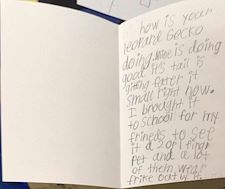 how is your
leopard Gecko
doing. Mine is doing
good it's tail is
gitting fater it
small right now.
I brought it
to school for my
frineds to see
it a 2 or 1 finger
Pet and a lot
of them wear
frike out by it